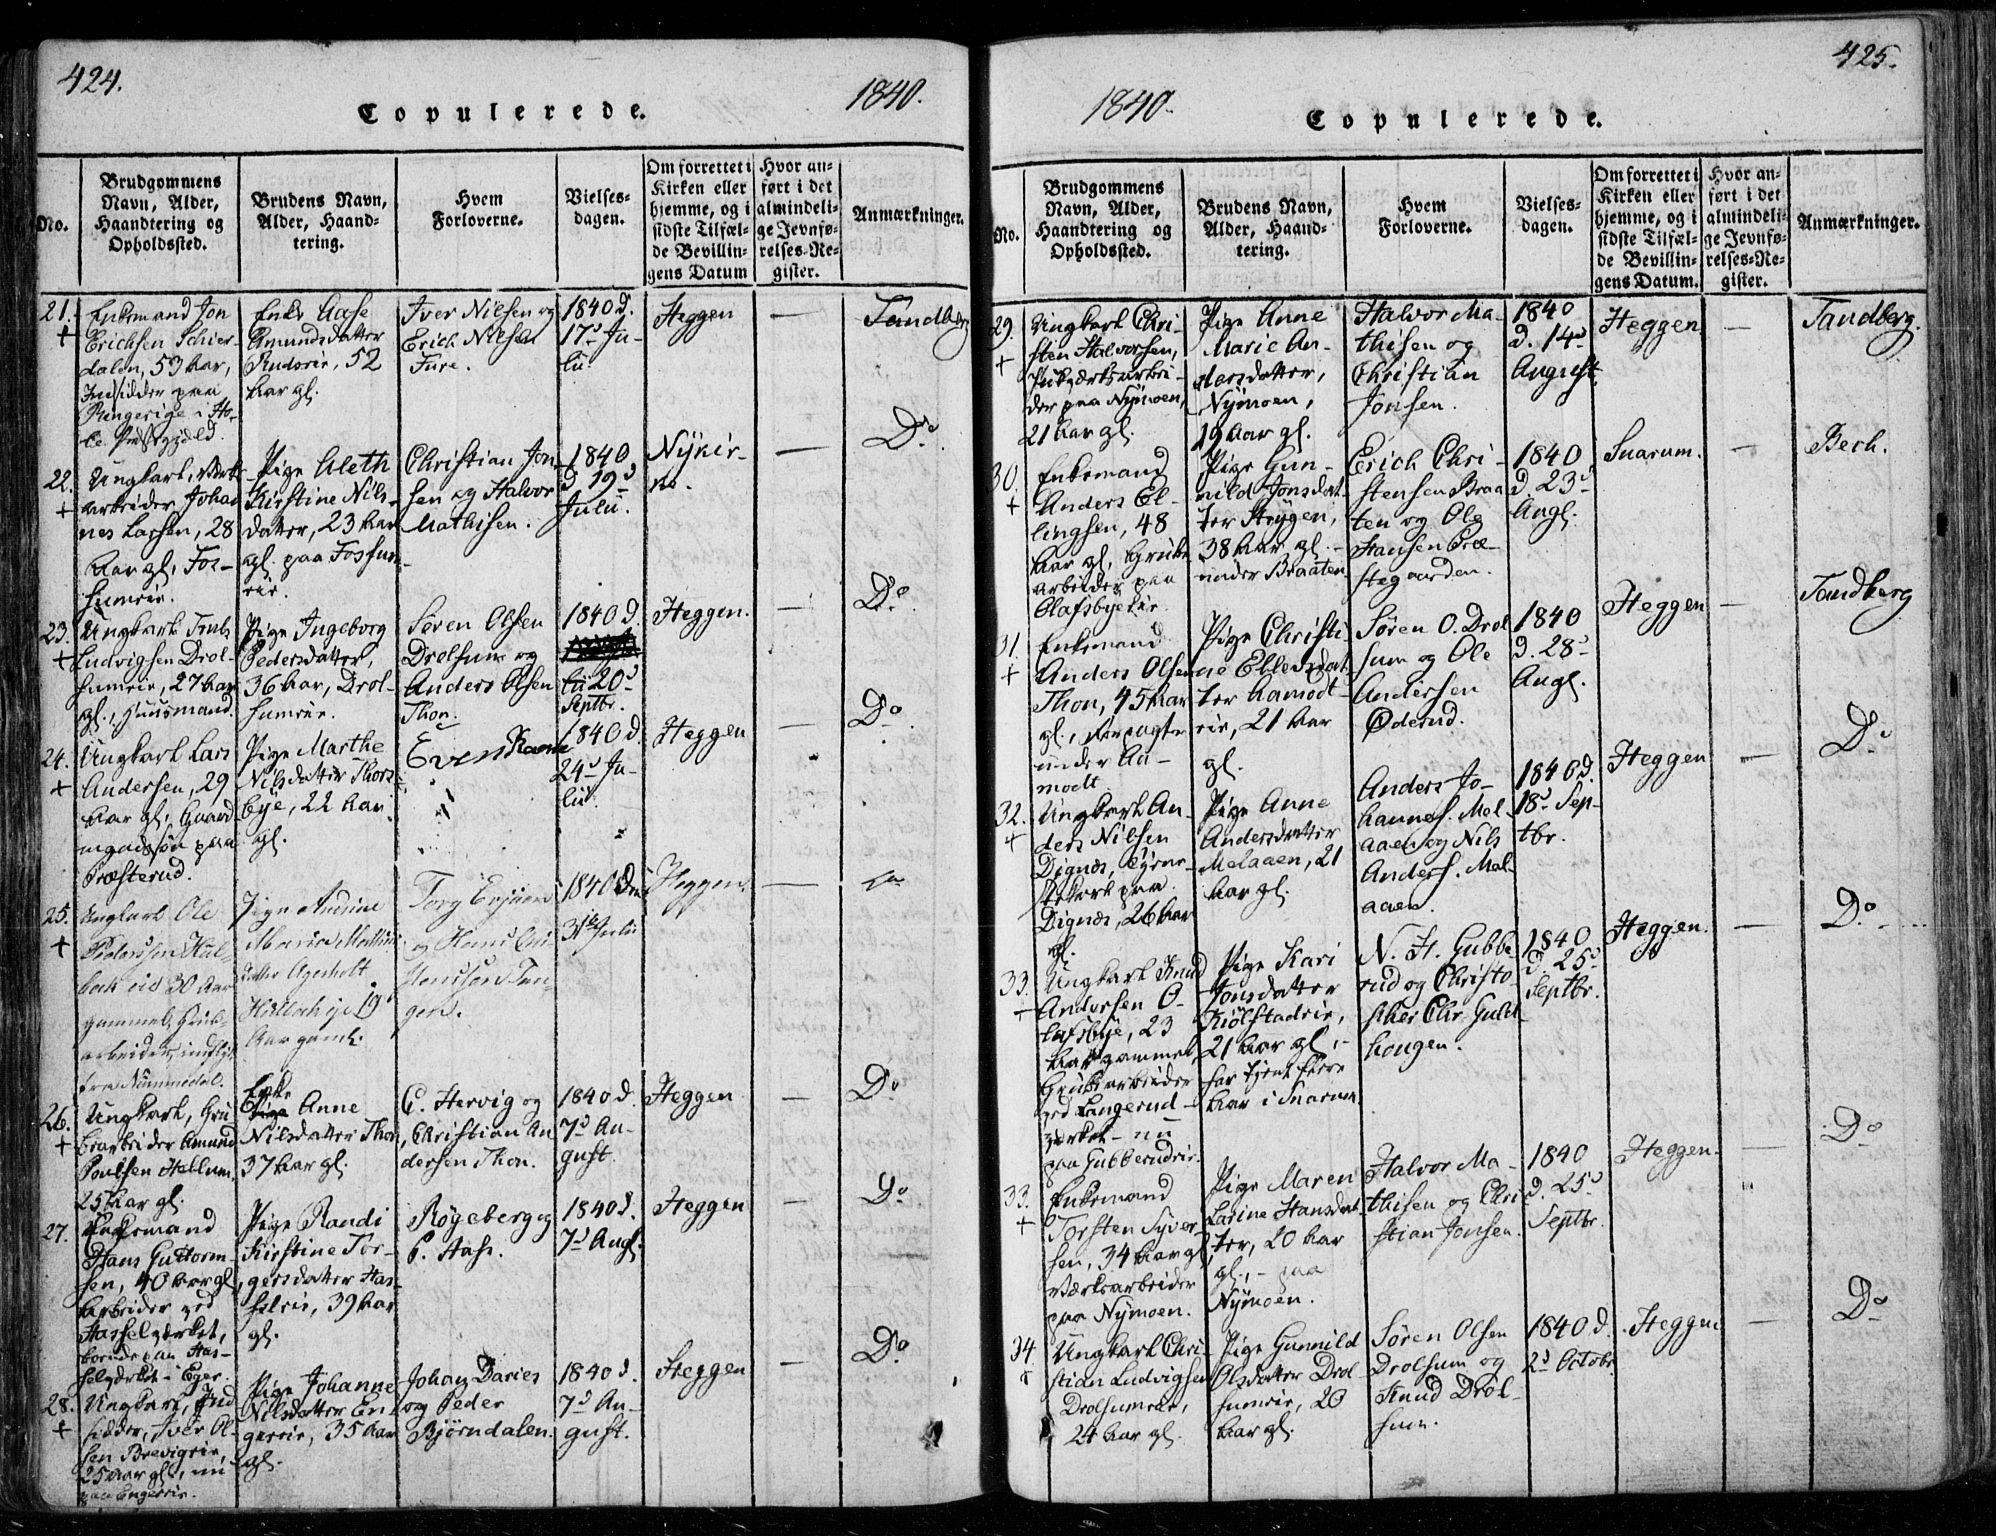 424.
1840.
Copulerede.
No.
Brudgommens
Navn, Alder,
Haandtering og
Opholdssted.
Brudens Navn,
Alder, Haand-
tering.
Hvem
Forloverne.
Vielses-
dagen.
Om forrettet i
Kirken eller
hjemme, og i
sidste Tilfæl-
de Bevillin-
gens Datum
Hvor an-
ført i det
almindeli-
ge Jevnfø-
relses-Re-
gister.
Anmærkninger.
21.
+
Enkemand Jon
Erichsen Schier-
dalen, 53 Aar,
Indsidder paa
Ringerige i Ho-
le Præstegjæld.
Enke Aase
Amundsdatter
Rudseie, 52
Aar gl.
Iver Nilsen og
Erich Nilsen
Fure.
1840 d.
17d Ju-
li.
Heggen
—
Tandberg
22.
+
Ungkarl, Værks-
arbeider Johan
nes Larsen, 28
Aar gl., Fos-
sumeie.
Pige Aleth
Kirstine Nils-
datter, 23 Aar
gl. paa Fossum-
eie.
Christian Jon-
sen og Halvor
Mathisen.
1840
d 19d
Julii.
Nykir-
ke.
—
Do
23.
+
Ungkarl Truls
Ludvigsen Drol-
sumeie, 27 Aar
gl., Huusmand.
Pige Ingeborg
Pedersdatter,
36 Aar, Drol-
sumeie.
Sören Olsen
Drolsum og
Anders Olsen
Thon.
1840 d.
20d
Septbr.
Heggen.
—
Do.
24.
+
Ungkarl Lars
Andersen, 29
Aar gl., Gaard-
mandssøn paa
Præsterud.
Pige Marthe
Nilsdatter Thors
bye, 22 Aar
gl.
Even Kaane
1840 d.
24d Ju-
lii.
Heggen
—
Do
25.
+
Ungkarl Ole
Pederssen Kal-
bak eie 30 Aar
gammel, Grub-
arbeider, indfl.
fra Nummedal.
Pige Andrine
Maria
datter Agerholt
19
Aar gamle.
og Hans
gen.
1840 den
31te Julii
Heggen.
—
26.
+
Ungkarl, Gru
bearbeider Amund
Poulsen Hellum,
25 Aar gl.
Enke
Anne
Nilsdatter Thon,
37 Aar gl.
C. Hervig og
Christian An
dersen Thon.
1840 d.
7d Au-
gust.
Heggen
—
Do
27.
Enkemand
Hans Guttorm-
sen, 40 Aar gl.
Arbeider ved
Hasselværket,
boende paa Has-
selværket i Eger.
Pige Randi
Kirstine Tor-
gersdatter Has-
seleie, 39 Aar
gl.
Røgeberg og
C. Hass.
1840 d.
7d Augl.
Heggen
—
Do
28.
+
Ungkarl, Ind
sidder, Iver Ol-
sen Brevigeie,
25 Aar gl., nu
paa Engereie.
Pige Johanne
Nilsdatter En
gereie, 35 Aar
gl.
Johan Daries
og Peder
Bjørndalen.
1840 d.
7d Au-
gust.
Heggen
—
Do
425.
1840.
Copulerede.
No.
Brudgommens
Navn, Alder,
Haandtering og
Opholdssted.
Brudens Navn,
Alder, Haand-
tering.
Hvem
Forloverne.
Vielses-
dagen.
Om forrettet i
Kirken eller
hjemme, og i
sidste Tilfæl-
de Bevillin-
gens Datum.
Hvor an-
ført i det
almindeli-
ge Jevnfø-
relses-Re-
gister.
Anmærkninger.
29.
+
Ungkarl Chri-
sten Halvorsen,
værksarbei-
der paa Nymoen,
21 Aar gl.
Pige Anne
Marie An-
dersdatter,
Nymoen,
19 Aar gl.
Halvor Ma-
thisen og
Christian
Jonsen.
1840
d. 14d
August.
Heggen
—
Tandberg.
30.
+
Enkemand
Anders El-
lingsen, 48
Aar gl., Grube
arbeider paa
Olafsbyeeie.
Pige Gun-
nild Jonsdat-
ter Strygen,
38 Aar gl. -
under Braaten.
Erich Chri-
stensen Braa
ten og Ole
Hansen Præ-
stegaarden.
1840
d. 23d
Augl.
Snarum.
—
Bech.
31.
+
Enkemand
Anders Olsen
Thon, 45 Aar
gl., Forpagter
under Aa-
modt
Pige Christi-
ne Ellevsdat
ter Aamodt-
eie, 21 Aar
gl.
Søren O. Drol
sum og Ole
Andersen
Øderud.
1840
d. 28d
Augl.
Heggen
—
Tandberg
32.
+
Ungkarl An-
ders Nilsen
Dignæs, Tjene-
stekarl paa
Dignæs, 26 Aar
gl.
Pige Anne
Andersdatter
Melaaen, 21
Aar gl.
Anders Jo-
hannes. Mel-
aaen og Nils
Anders. Mel-
aaen.
1840 d.
18d Sep-
tbr.
Heggen
—
Do
33.
+
Ungkarl Knud
Andersen O-
lafsbye, 23
Aar gammel,
Grubearbeider
ved Langerud-
værket - nu
paa Gubberudeie.
Pige Kari
Jonsdatter
Kiölstadeie,
21 Aar gl., -
har tjent flere
Aar i Snarum
N. H. Gubbe-
rud og Christo-
pher Chr. Guld-
hougen.
1840
d. 25d
Septbr.
Heggen.
—
Do
33.
+
Enkemand
Torsten Syver-
sen, 34 Aar gl,
Værksarbeider
paa Nymoen.
Pige Maren
Larine Hansdat
ter, 20 Aar
gl., - paa
Nymoen.
Halvor Ma-
thisen og Chri
stian Jonsen.
1840
d. 25d
Septbr.
Heggen.
—
Do
34.
Ungkarl Chri-
stian Ludvigsen
Drolsumeie,
24 Aar gl.
Pige Gunnild
Olsdatter Drol
sumeie, 20
Aar gl.
Søren Olsen
Drolsum og
Knud Drol-
sum.
1840 d.
2d Octobr.
Heggen
—
Do